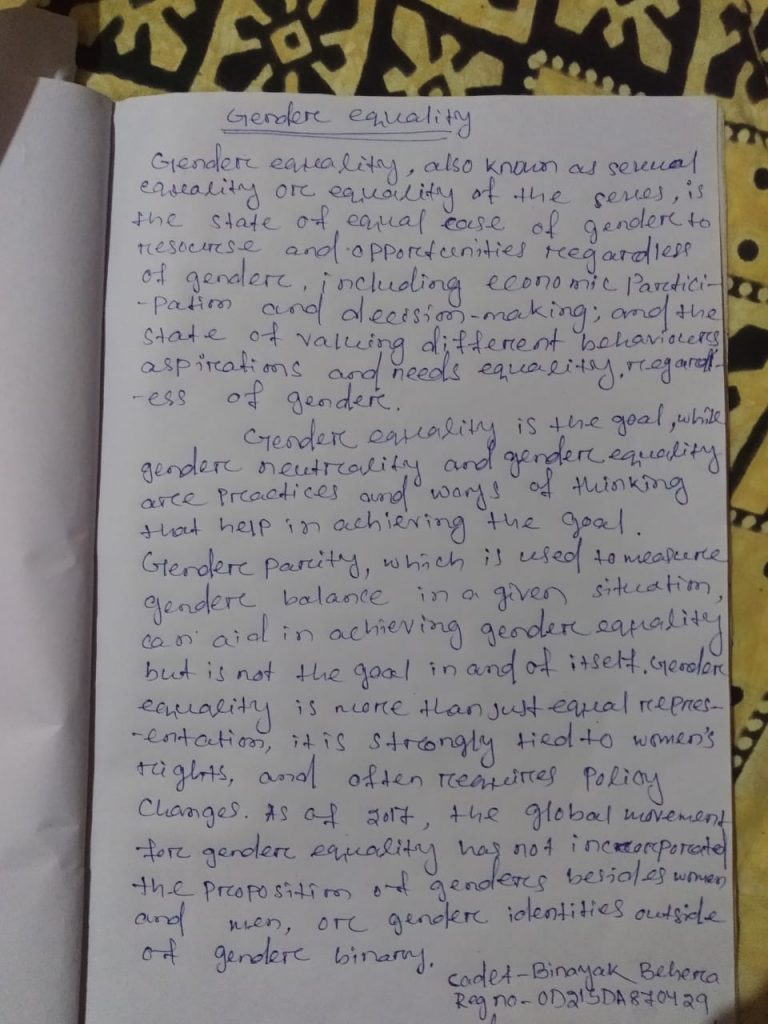 Gender equality
Gender equality, also known as sexual
equality or equality of the sexes, is
the state of equal ease of gender to
resourse and opportunities regardless
of gender, including economic Partici-
-pation and decision-making; and the
state of valuing different behaviours
aspirations and needs equality, regardl-
-ess of gender.
Gender equality is the goal, while
gender neutrality and gender equality
are practices and ways of thinking
that help in achieving the goal.
Gender parity, which is used to measure
gender balance in a given situation,
can aid in achieving gender equality
but is not the goal in and of itself. Gender
equality is more than just equal repres-
-entation, it is strongly tied to women's
rights, and often requires policy
Changes. As of 2017, the global movement
for gender equality has not incorporated
the proposition of genders besides women
and men, or gender identities outside
of gender binary.
Cadet-Binayak Behera
Reg no-OD21SDA870429